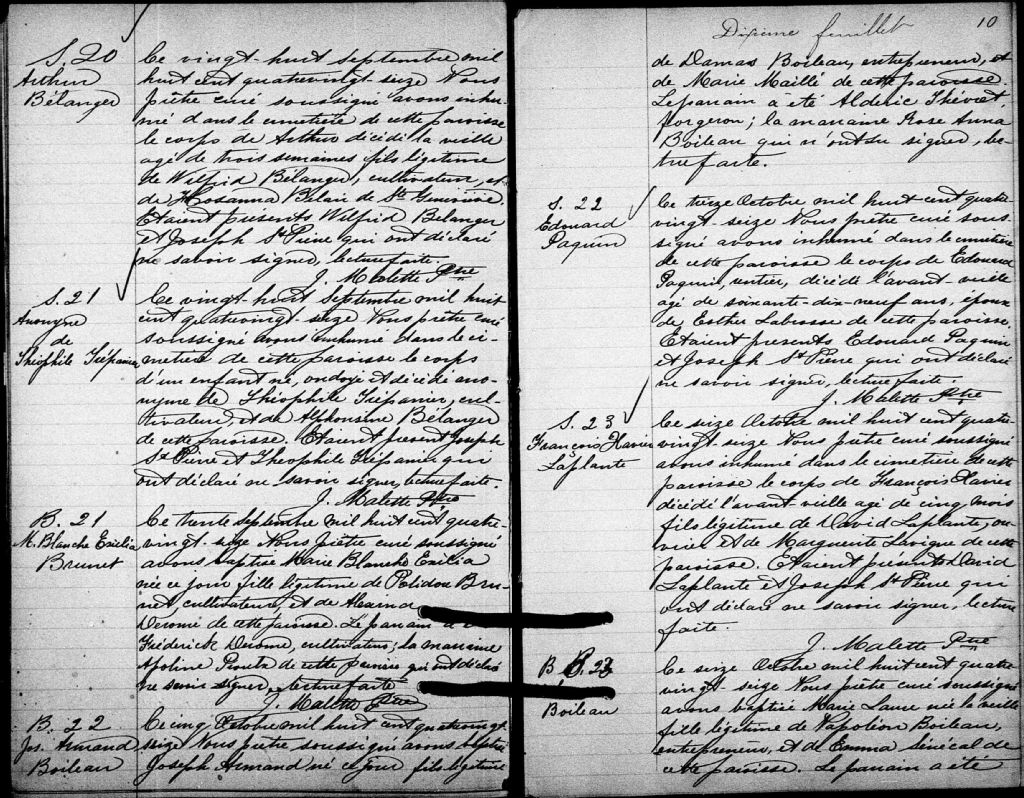 S. 20
Arthur
Bélanger
Ce vingt-huit septembre mil
huit cent quatrevingt-seize Nous
prêtre curé soussigné avons inhu-
mé dans le cimetière de cette paroisse
le corps de Arthur décédé la veille
agé de trois semaines fils légitime
de Wilfrid Bélanger, cultivateur, et
de Hosanna Belair de Ste Geneviève.
Etaient presents Wilfrid Bélanger
et Joseph St Pierre qui ont déclaré
ne savoir signer, lecture faite.
J. Malette Ptre
S. 21
Anonyme
de
Théophile Trépanier
Ce vingt-huit Septembre mil huit
cent quatrevingt-seize Nous prêtre curé
soussigné avons inhumé dans le ci-
metière de cette paroisse le corps
d'un enfant né, ondoyé et décédé ano-
nyme de Théophile Trépanier, cul-
tivateur, et de Alphonsine Bélanger
de cette paroisse. Etaient présent Joseph
St Pierre et Theophile Trépanier qui
ont déclaré ne savoir signer, lecture faite.
J. Malette Ptre
B. 21
M. Blanche Exilia
Brunet
Ce trente septembre mil huit cent quatre-
vingt-seize Nous prêtre curé soussigné
avons baptisé Marie Blanche Exilia
née ce jour fille légitime de Polidou Bru-
net, cultivateur, et de
Derome de cette paroisse. Le parrain a été
Fréderick Derome, cultivateur; la marraine
Apoline Proulx de cette paroisse qui ont déclaré
ne savoir signer, lecture faite
J. Malette Ptre
B. 22
Jos. Armand
Boileau
Ce cinq Octobre mil huit cent quatrevingt-
seize Nous prêtre soussigné avons baptisé
Joseph Armand né ce jour fils légitime
Dixieme feuillet
10
de Damas Boileau, entrepreneur, et
de Marie Maillé de cette paroisse
Le parrain a été Alderic Thévret,
forgeron; la marraine Rose Anna
Boileau qui n'ont su signer, lec-
ture faite.
S. 22
Edouard
Paquin
Ce treize Octobre mil huit cent quatre-
vingt-seize Nous prêtre curé sous-
signé avons inhumé dans le cimetière
de cette paroisse le corps de Edouard
Paquin, rentier, décédé l'avant-veille
agé de soixante-dix-neuf ans, époux
de Esther Labrosse de cette paroisse.
Etaient presents Edouard Paquin
et Joseph St Pierre qui ont déclaré
ne savoir signer, lecture faite.
J. Malette Ptre
S. 23
François Xavier
Laplante
Ce seize Octobre mil huit cent quatre-
vingt seize Nous prêtre curé soussigné
avons inhumé dans le cimetière de cette
paroisse le corps de François Xavier
décédé l'avant-veille agé de cinq mois
fils légitime de David Laplante, ou-
vrier et de Marguerite Lavigne de cette
paroisse. Etaient présents David
Laplante et Joseph St Pierre qui
ont déclaré ne savoir signer, lecture
faite.
J. Malette Ptre
B. 23
Boileau
Ce seize Octobre mil huit cent quatre
vingt-seize Nous prêtre curé soussigné
avons baptisé Marie Laure née la veille
fille légitime de Napoléon Boileau,
entrepreneur, et de Emma Sénécal de
cette paroisse. Le parrain a été